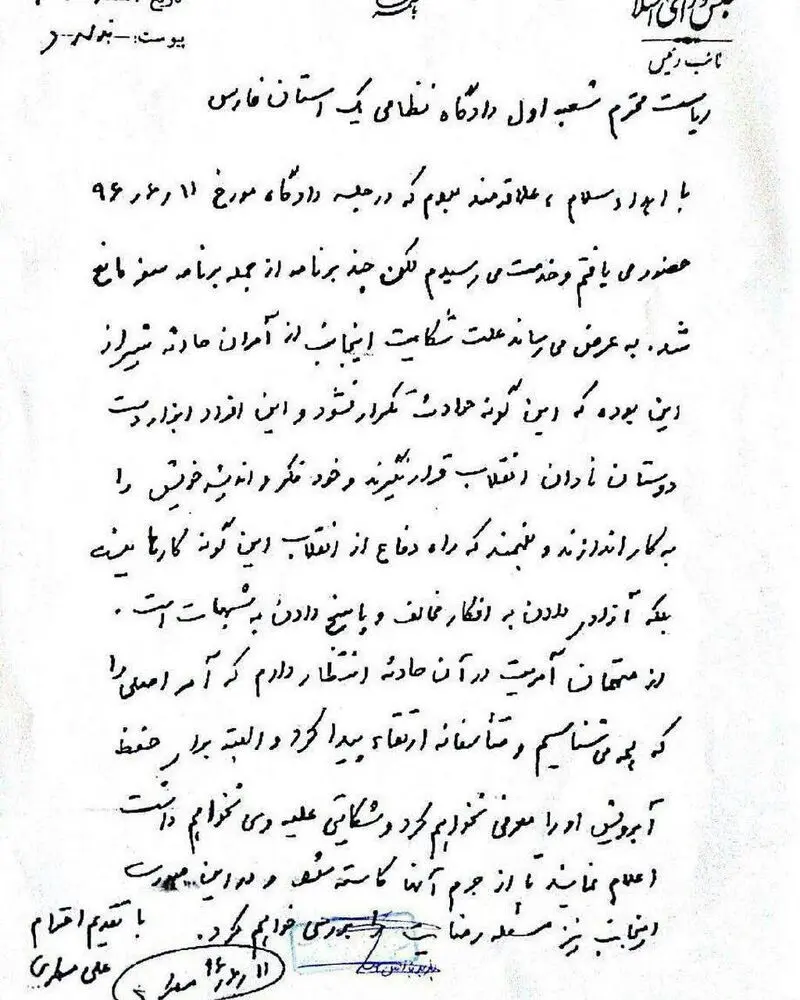 مجلس شورای اسلامی
نائب رئیس
پیوست:
ریاست محترم شعبه اول دادگاه نظامی یک استان فارس
با اهداء سلام، علاقمند بودم که در جلسه دادگاه مورخ ۹۶/۶/۱۱
حضور می یافتم و خدمت می رسیدم لکن چند برنامه از جمله برنامه سفر مانع
شد. به عرض می رساند علت شکایت اینجانب از آمران حادثه شیراز
این بوده که این گونه حوادث تکرار نشود و این افراد ابزار دست
دوستان نادان انقلاب قرار نگیرند و خود فکر و اندیشه خویش را
به کار اندازند و بفهمند که راه دفاع از انقلاب این گونه کارها نیست
بلکه آزادی دادن به افکار مخالف و پاسخ دادن به شبهات است.
از متهمان آمریت در آن حادثه انتظار دارم که آمر اصلی را
که همه می شناسیم و متأسفانه ارتقاء پیدا کرد و البته برای حفظ
آبرویش او را معرفی نخواهم کرد و شکایتی علیه وی نخواهم داشت
اعلام نمایند تا از جرم آنها کاسته شود و در این صورت
اینجانب نیز مسئله رضایت را بررسی خواهم کرد.
با تقدیم احترام
علی مطهری
۹۶/۶/۱۱